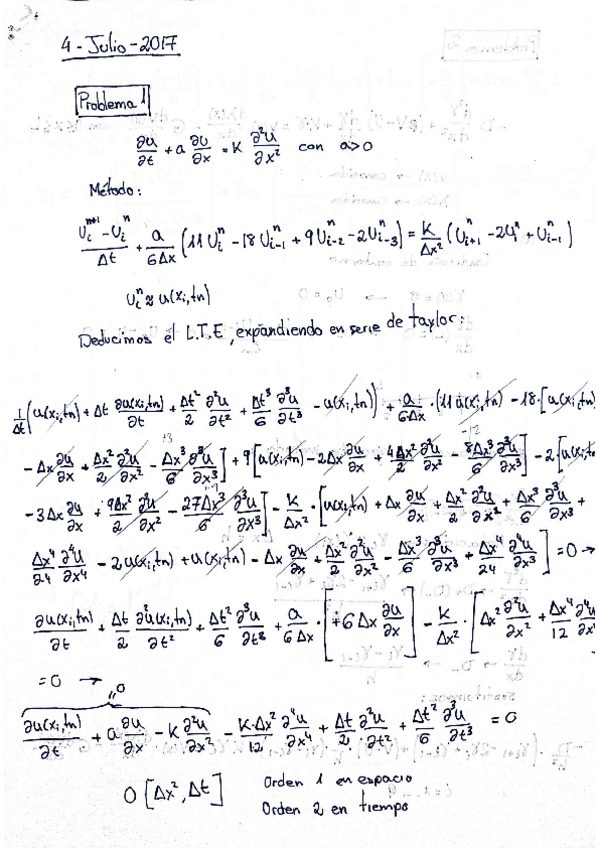 4-Julio-2017
Problema 1
∂u/∂t + a ∂u/∂x = K ∂²u/∂x² con a>0
Método:
(U_i^{n+1} - U_i^n)/Δt + a/(6Δx) (11U_i^n - 18U_{i-1}^n + 9U_{i-2}^n - 2U_{i-3}^n) = K/Δx² (U_{i+1}^n - 2U_i^n + U_{i-1}^n)
U_i^n ≈ u(x_i,t_n)
Deducimos el L.T.E, expandiendo en serie de taylor:
1/Δt (u(x_i,t_n) + Δt ∂u(x_i,t_n)/∂t + Δt²/2 ∂²u/∂t² + Δt³/6 ∂³u/∂t³ - u(x_i,t_n)) + a/(6Δx) · (11u(x_i,t_n) - 18·[u(x_i,t_n)
- Δx ∂u/∂x + Δx²/2 ∂²u/∂x² - Δx³/6 ∂³u/∂x³] + 9[u(x_i,t_n) - 2Δx ∂u/∂x + 4Δx²/2 ∂²u/∂x² - 8Δx³/6 ∂³u/∂x³] - 2·[u(x_i,t_n)
- 3Δx ∂u/∂x + 9Δx²/2 ∂²u/∂x² - 27Δx³/6 ∂³u/∂x³] - K/Δx² · [u(x_i,t_n) + Δx ∂u/∂x + Δx²/2 ∂²u/∂x² + Δx³/6 ∂³u/∂x³ +
Δx⁴/24 ∂⁴u/∂x⁴ - 2u(x_i,t_n) + u(x_i,t_n) - Δx ∂u/∂x + Δx²/2 ∂²u/∂x² - Δx³/6 ∂³u/∂x³ + Δx⁴/24 ∂⁴u/∂x⁴] = 0 →
∂u(x_i,t_n)/∂t + Δt/2 ∂²u(x_i,t_n)/∂t² + Δt²/6 ∂³u/∂t³ + a/(6Δx) · [+6Δx ∂u/∂x] - K/Δx² · [Δx² ∂²u/∂x² + Δx⁴/12 ∂⁴u/∂x⁴
= 0 →
0
∂u(x_i,t_n)/∂t + a ∂u/∂x - K ∂²u/∂x² - K·Δx²/12 ∂⁴u/∂x⁴ + Δt/2 · ∂²u/∂t² + Δt²/6 ∂³u/∂t³ = 0
O[Δx², Δt] Orden 1 en espacio
Orden 2 en tiempo